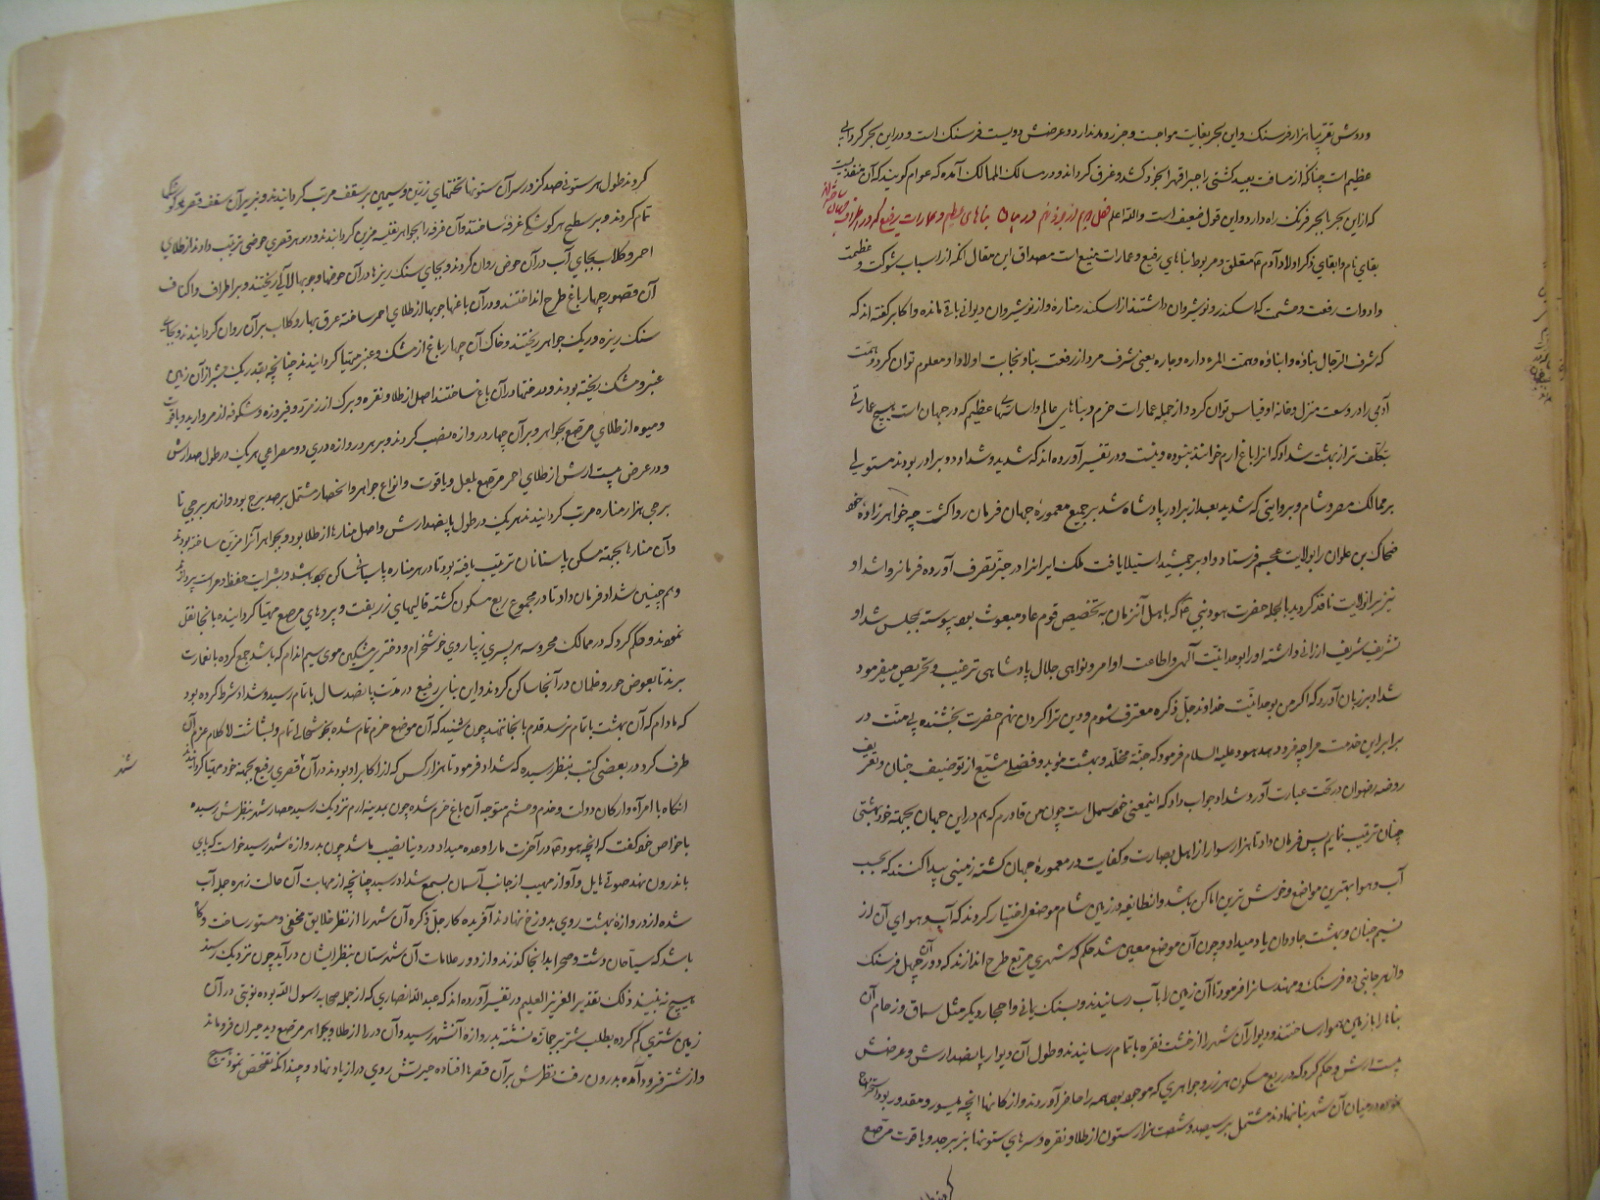 و دورش تقریبا هزار فرسنک و این بحر بغایت مواجست و جزر و مد ندارد و عرضش دویست فرسنک است و در این بحر کردابی
عظیم است چنانکه از مسافت بعید کشتی را جبرا قهرا بخود کشد و غرق کرداند و در مسالک الممالک آمده که عوام کویند که آن منفذیست
که از این بحر ببحر فرنک راه دارد و این قول ضعیف است والله اعلم در بیان بناهای عظیم و عمارات رفیع که در اطراف جهان
بقای نام و ابقای ذکر اولاد آدم متعلق و مربوط ببناهای رفیع و عمارات منیع است مصداق این مقال آنکه از اسباب شوکت و عظمت
و ادوات رفعت و حشمت که اسکندر و نوشیروان داشتند از اسکندر مناره و از نوشیروان دیواری باقی مانده و اکابر کفته اند که
که شرف الرجال بناؤه و ابناؤه و همت المرء داره و جاره یعنی شرف مرد از رفعت بنا و نجابت اولاد او معلوم توان کرد و همت
آدمی را در وسعت منزل و خانه او قیاس توان کرد و از جمله عمارات خرم و بناهای عالم و اساسهای عظیم که در جهان است هیچ عمارتی
بتکلف تر از بهشت شداد که انرا باغ ارم خوانند نبوده و نیست و در تفسیر آورده اند که شدید و شداد دو برادر بودند مستولی
بر ممالک مصر و شام و بروایتی که شدید بعد از برادر پادشاه شد بر جمیع معموره جهان فرمان روا کشت چه خواهرزاده خود
ضحاک بن علوان را بولایت عجم فرستاد و او بر جمشید استیلا یافت ملک ایران را در حیز تصرف آورده فرمانروا شد او
نیز بر انولایت نافذ کردید بالجمله حضرت هود نبی که باهل آنزمان به تخصیص قوم عاد مبعوث بود پیوسته بمجلس شداد
تشریف شریف ارزانی داشته او را بوحدانیت آلهی و اطاعت اوامر و نواهی جلال پادشاهی ترغیب و تحریص میفرمود
شداد بر زبان آورد که اکر من بوحدانیت خداوند جل ذکره معترف شوم و دین ترا کردن نهم حضرت بخشنده بی منت در
برابر این خدمت مرا چه مزد دهد هود علیه السلام فرمود که جنة مخلد و بهشت مؤبد و فصلی مشبع از توصیف جنان و تعریف
روضه رضوان در تحت عبارت آورد شداد جواب داد که اینمعنی خود سهل است چون من قادرم که هم در این جهان بجهته خود بهشتی
چنان ترتیب نمایم پس فرمان داد تا هزار سوار از اهل بصارت و کفایت در معموره جهان کشته زمینی پیدا کنند که بحسب
آب و هوا بهترین مواضع و خوش ترین اماکن باشد و انطایفه در زمین شام موضعی اختیار کردند که آب و هوای آن از
نسیم جنان و بهشت جاودان یاد میداد و چون آن موضع معین شد حکم که شهری مربع طرح اندازند که دور آن چهل فرسنک
و از هر جانبی ده فرسنک و مهندسانرا فرمود تا آن زمین را بآب رسانیدند و بسنک یمانی و احجار دیکر مثل سماق و رخام آن
بناها را با زمین هموار ساختند و دیوار آن شهر را از خشت نقره باتمام رسانیدند و طول آن دیوار پانصد ارش و عرضش
بیست ارش و حکم کرد که در ربع مسکون هر زر و جواهری که موجود بود همه را حاضر آوردند و از کانها انچه میسور و مقدور بود استخراج
نموده در میان آن شهر بنا نهادند مشتمل بر سیصد و شصت هزار ستون از طلا و نقره و سرهای ستونها بزبرجد و یاقوت مرصع
کردند طول هر ستونی صد کز و بر سر آن ستونها تختهای زرین و سیمین بر سقف مرتب کردانیدند و بزیر آن سقف قصر کوشک
تمام کردند و بر سطح هر کوشک غرفه ساختند و آن غرفه را بجواهر نفیسه مزین کردانیدند و در هر قصری حوضی ترتیب دادند از طلای
احمر و کلاب بجای آب در آن حوض روان کردند و بجای سنک ریزها در آن حوضها و جویها لآلی ریختند و بر اطراف و اکناف
آن قصور چهار باغ طرح انداختند و در آن باغها جویها از طلای احمر ساخته عرق بهار و کلاب بر آن روان کردانیدند و بجای
سنک ریزه و ریک جواهر ریختند و خاک آن چهار باغ از مشک و عنبر مهیا کردانیدند چنانچه بقدر یک شبر از آن زمین
عنبر و مشک ریخته بودند و درختها در آن باغ ساختند اصل از طلا و نقره و برک از زمرد و فیروزه و شکوفه از مروارید و یاقوت
و میوه از طلای مرصع بجواهر و بر آن چهار دروازه نصب کردند و بر هر دروازه دری دو مصراعی هر یک در طول صد ارش
و در عرض بیست ارش از طلای احمر مرصع بلعل و یاقوت و انواع جواهر و انحصار مشتمل بر صد برج بود و از هر برجی تا
برجی هزار مناره مرتب کردانیدند هر یک در طول پانصد ارش و اصل منارها از طلا بود و بجواهر آنرا مزین ساخته بودند
و آن منارها بجهته مسکن پاسبانان ترتیب یافته بود تا در هر مناره پاسبانی ساکن بوده باشد و بشرایط حفظ و حراست پردازد
و هم چنین شداد فرمان داد تا در مجموع ربع مسکون کشته قالیهای زربفت و پردهای مرصع مهیا کردانیده بانجا نقل
نمودند و حکم کرد که در ممالک محروسه هر پسری زیبا روی خوشخرام و دختری مشکین موی سیم اندام که باشد جمع کرده بانعمارت
برند تا بعوض حور و غلمان در آنجا ساکن کردند و این بنای رفیع در مدت پانصد سال باتمام رسید و شداد شرط کرده بود
که مادام که آن بهشت باتمام نرسد قدم بانجا ننهد چون شنید که آن موضع خرم تمام شده بخوشحالی تمام و بشاشت لا کلام عزم آن
طرف کرد در بعضی کتب بنظر رسیده که شداد فرمود تا هزار کس که از اکابر او بودند در آن قصری رفیع بجهته خود مهیا کردانیدند
شد
انکاه با امرآء و ارکان دولت و خدم و حشم متوجه آن باغ خرم شده چون بمدینه ارم نزدیک رسید حصار شهر بنظرش رسیده
با خواص خود کفت که انچه هود در آخرت ما را وعده میداد در دنیا نصیب ما شد چون بدروازه شهر رسید خواست که پای
باندرون نهد صوتی هایل و آواز مهیب از جانب آسمان بسمع شداد رسید چنانچه از مهابت آن حالت زهره جمله آب
شده از دروازه بهشت روی بدوزخ نهادند آفریده کار جل ذکره آن شهر را از نظر خلایق مخفی و مستور ساخت و کاه
باشد که سیاحان دشت و صحرا بدانجا کذرند و از دور علامات آن شهرستان بنظر ایشان در آید چون نزدیک رسند
هیچ نه بینند ذلک تقدیر العزیز العلیم و در تفسیر آورده اند که عبدالله انصاری که از جمله صحابه رسول الله بوده نوبتی در آن
زمین شتری کم کرده بطلب شتر بر جمازه نشسته بدروازه آنشهر رسید و آن در را از طلا و بجواهر مرصع دید حیران فروماند
و از شتر فرود آمده بدرون رفت نظرش بر آن قصرها افتاده حیرتش روی در ازدیاد نهاد و چندانکه تفحص نمود هیچ